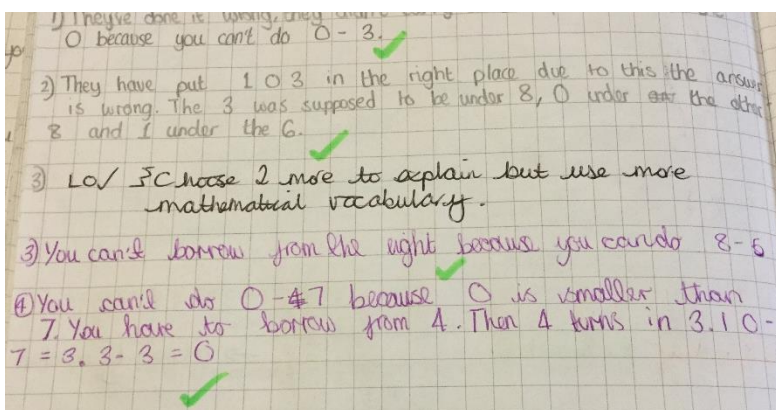 1) They've done it wrong, they
0 because you can't do 0 - 3.
2) They have put 1 0 3 in the right place due to this the answer
is wrong. The 3 was supposed to be under 8, 0 under the other
8 and 1 under the 6.
3) LO/ Choose 2 more to explain but use more
mathematical vocabulary.
3) You can't borrow from the eight because you can do 8-6
4) You can't do 0-7 because 0 is smaller than
7. You have to borrow from 4. Then 4 turns in 3. 10-
7 = 3. 3 - 3 = 0